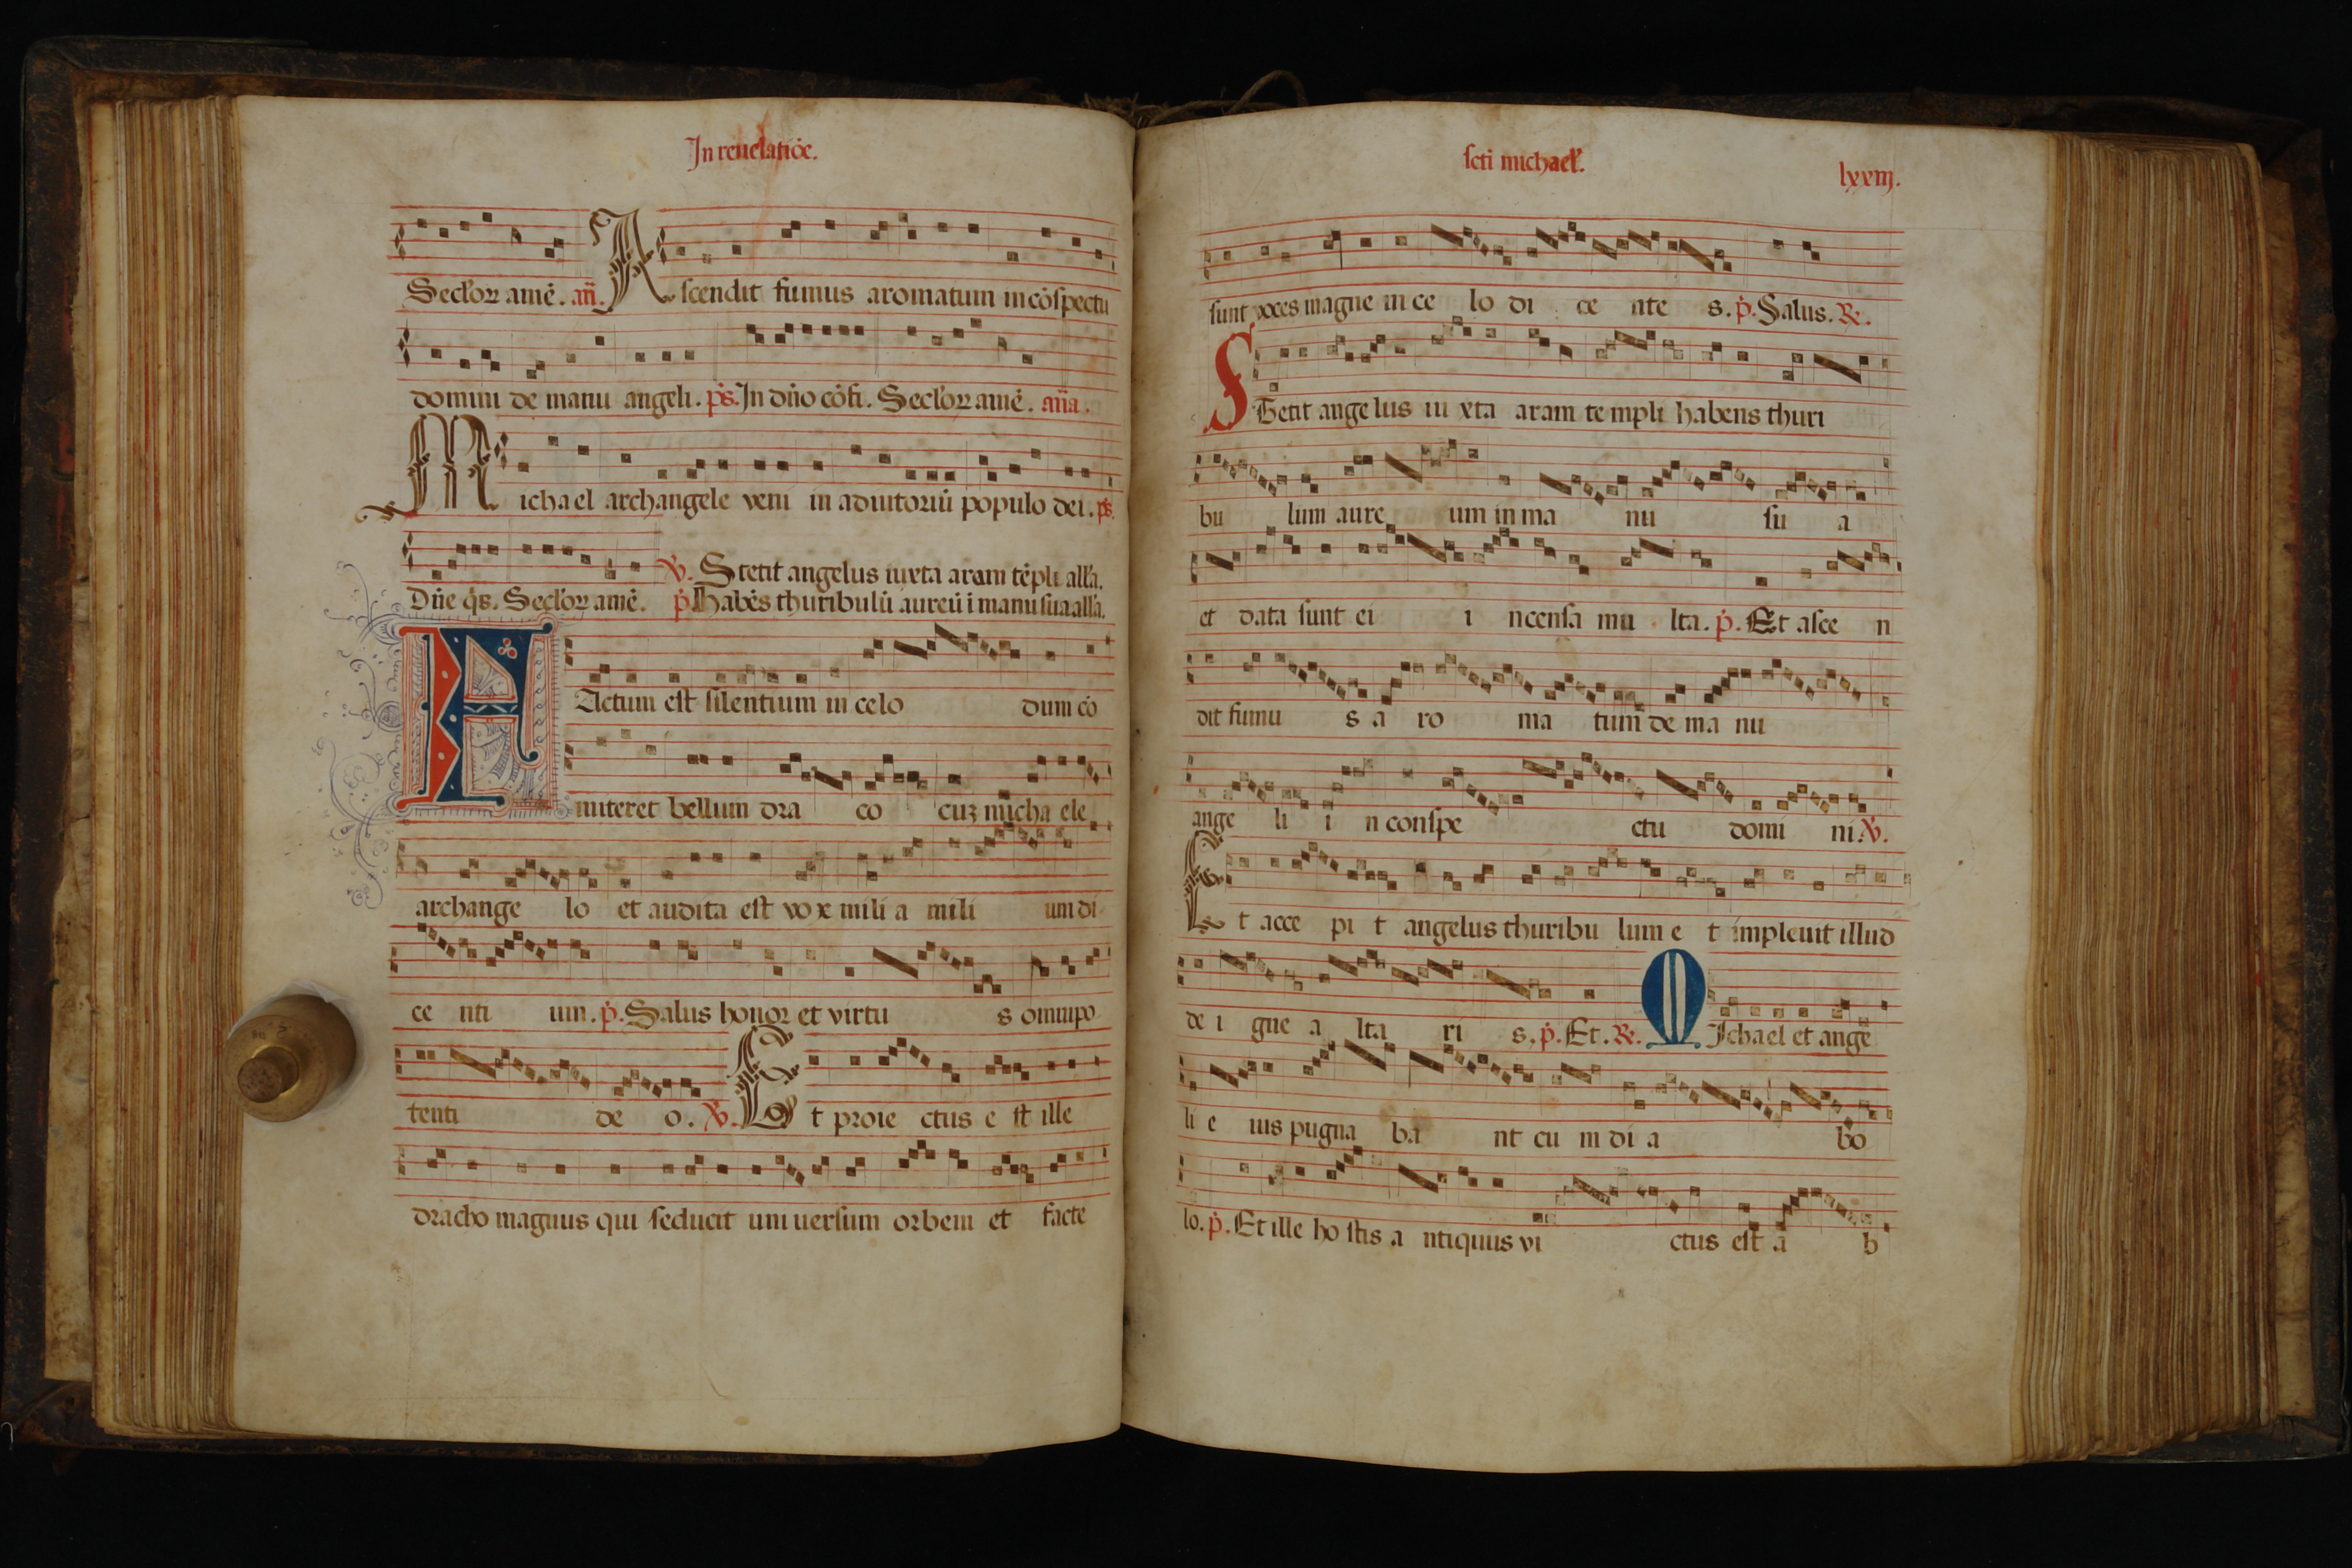 In reuelatiōe.
Seclorꝝ amē. añ. Ascendit fumus aromatum in cōspectu
domini de manu angeli. ps. In dño cōfi. Seclorꝝ amē. aña.
Michael archangele veni in adiutoriū populo dei. ps.
℣. Stetit angelus iuxta aram tēpli alla.
Dñe q̇s. Seclorꝝ amē. p̄. Habēs thuribulū aureū ī manu sua alla.
FActum est silentium in celo dum cō
mitteret bellum dra co cuꝫ micha ele
archange lo et audita est vo x mili a mili um di
ce nti um. p̄. Salus honor et virtu s omnipo
tenti de o. ℣. Et proie ctus e st ille
dracho magnus qui seducit uni uersum orbem et facte
scti michael.
lxxiij.
sunt voces magne in ce lo di ce nte s. p̄. Salus. ℞.
STetit ange lus iu xta aram te mpli habens thuri
bu lum aure um in ma nu su a
et data sunt ei i ncensa mu lta. p̄. Et asce n
dit fumu s a ro ma tum de ma nu
ange li i n conspe ctu domi ni. ℣.
Et acce pi t angelus thuribu lum e t impleuit illud
de i gne a lta ri s. p̄. Et. ℞. MIchael et ange
li e ius pugna ba nt cu m di a bo
lo. p̄. Et ille ho stis a ntiquus vi ctus est a b